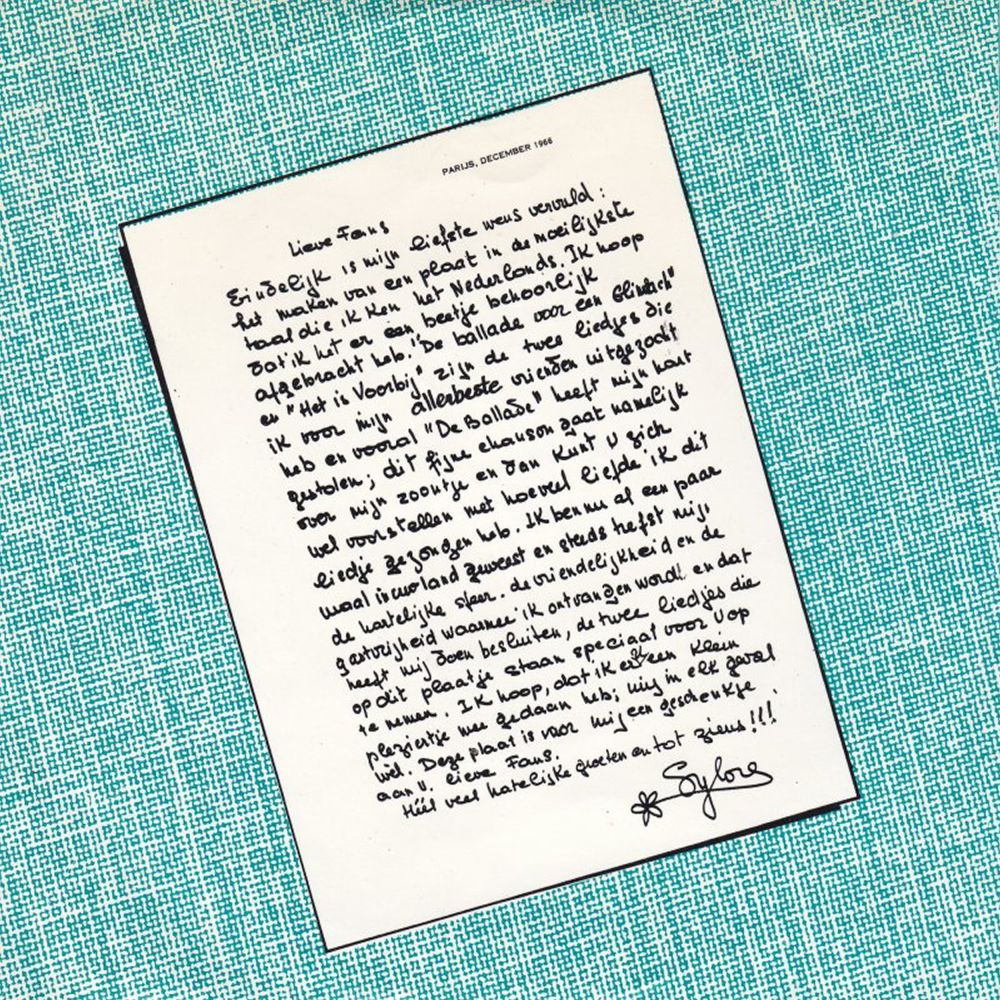 PARIJS, DECEMBER 1966
Lieve Fans
Eindelijk is mijn liefste wens vervuld:
het maken van een plaat in de moeilijkste
taal die ik ken het Nederlands. Ik hoop
dat ik het er een beetje behoorlijk
afgebracht heb. "De ballade voor een Glimlach"
en "Het is Voorbij" zijn de twee liedjes die
ik voor mijn allerbeste vrienden uitgezocht
heb en vooral "De Ballade" heeft mijn hart
gestolen; dit fijne chanson gaat namelijk
over mijn zoontje en dan kunt U zich
wel voorstellen met hoeveel liefde ik dit
liedje gezongen heb. Ik ben nu al een paar
maal in uw land geweest en steeds trefst mij,
de hartelijke sfeer. de vriendelijkheid en de
gastvrijheid waarmee ik ontvangen wordt en dat
heeft mij doen besluiten, de twee liedjes die
op dit plaatje staan speciaal voor U op
te nemen. Ik hoop, dat ik er een klein
pleziertje mee gedaan heb; mij in elk geval
wèl. Deze plaat is voor mij een geschenkje
aan U, lieve Fans.
Héél veel hartelijke groeten en tot ziens!!!